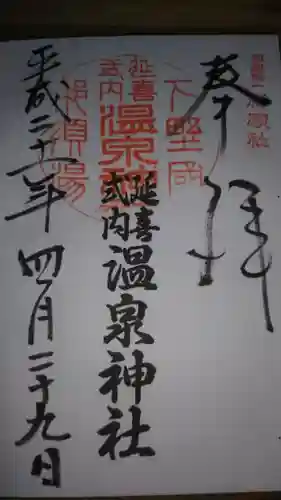 奉拝
延喜
式内
温泉神社
平成二十一年四月二十九日
下野国
延喜
式内
温泉
那須湯